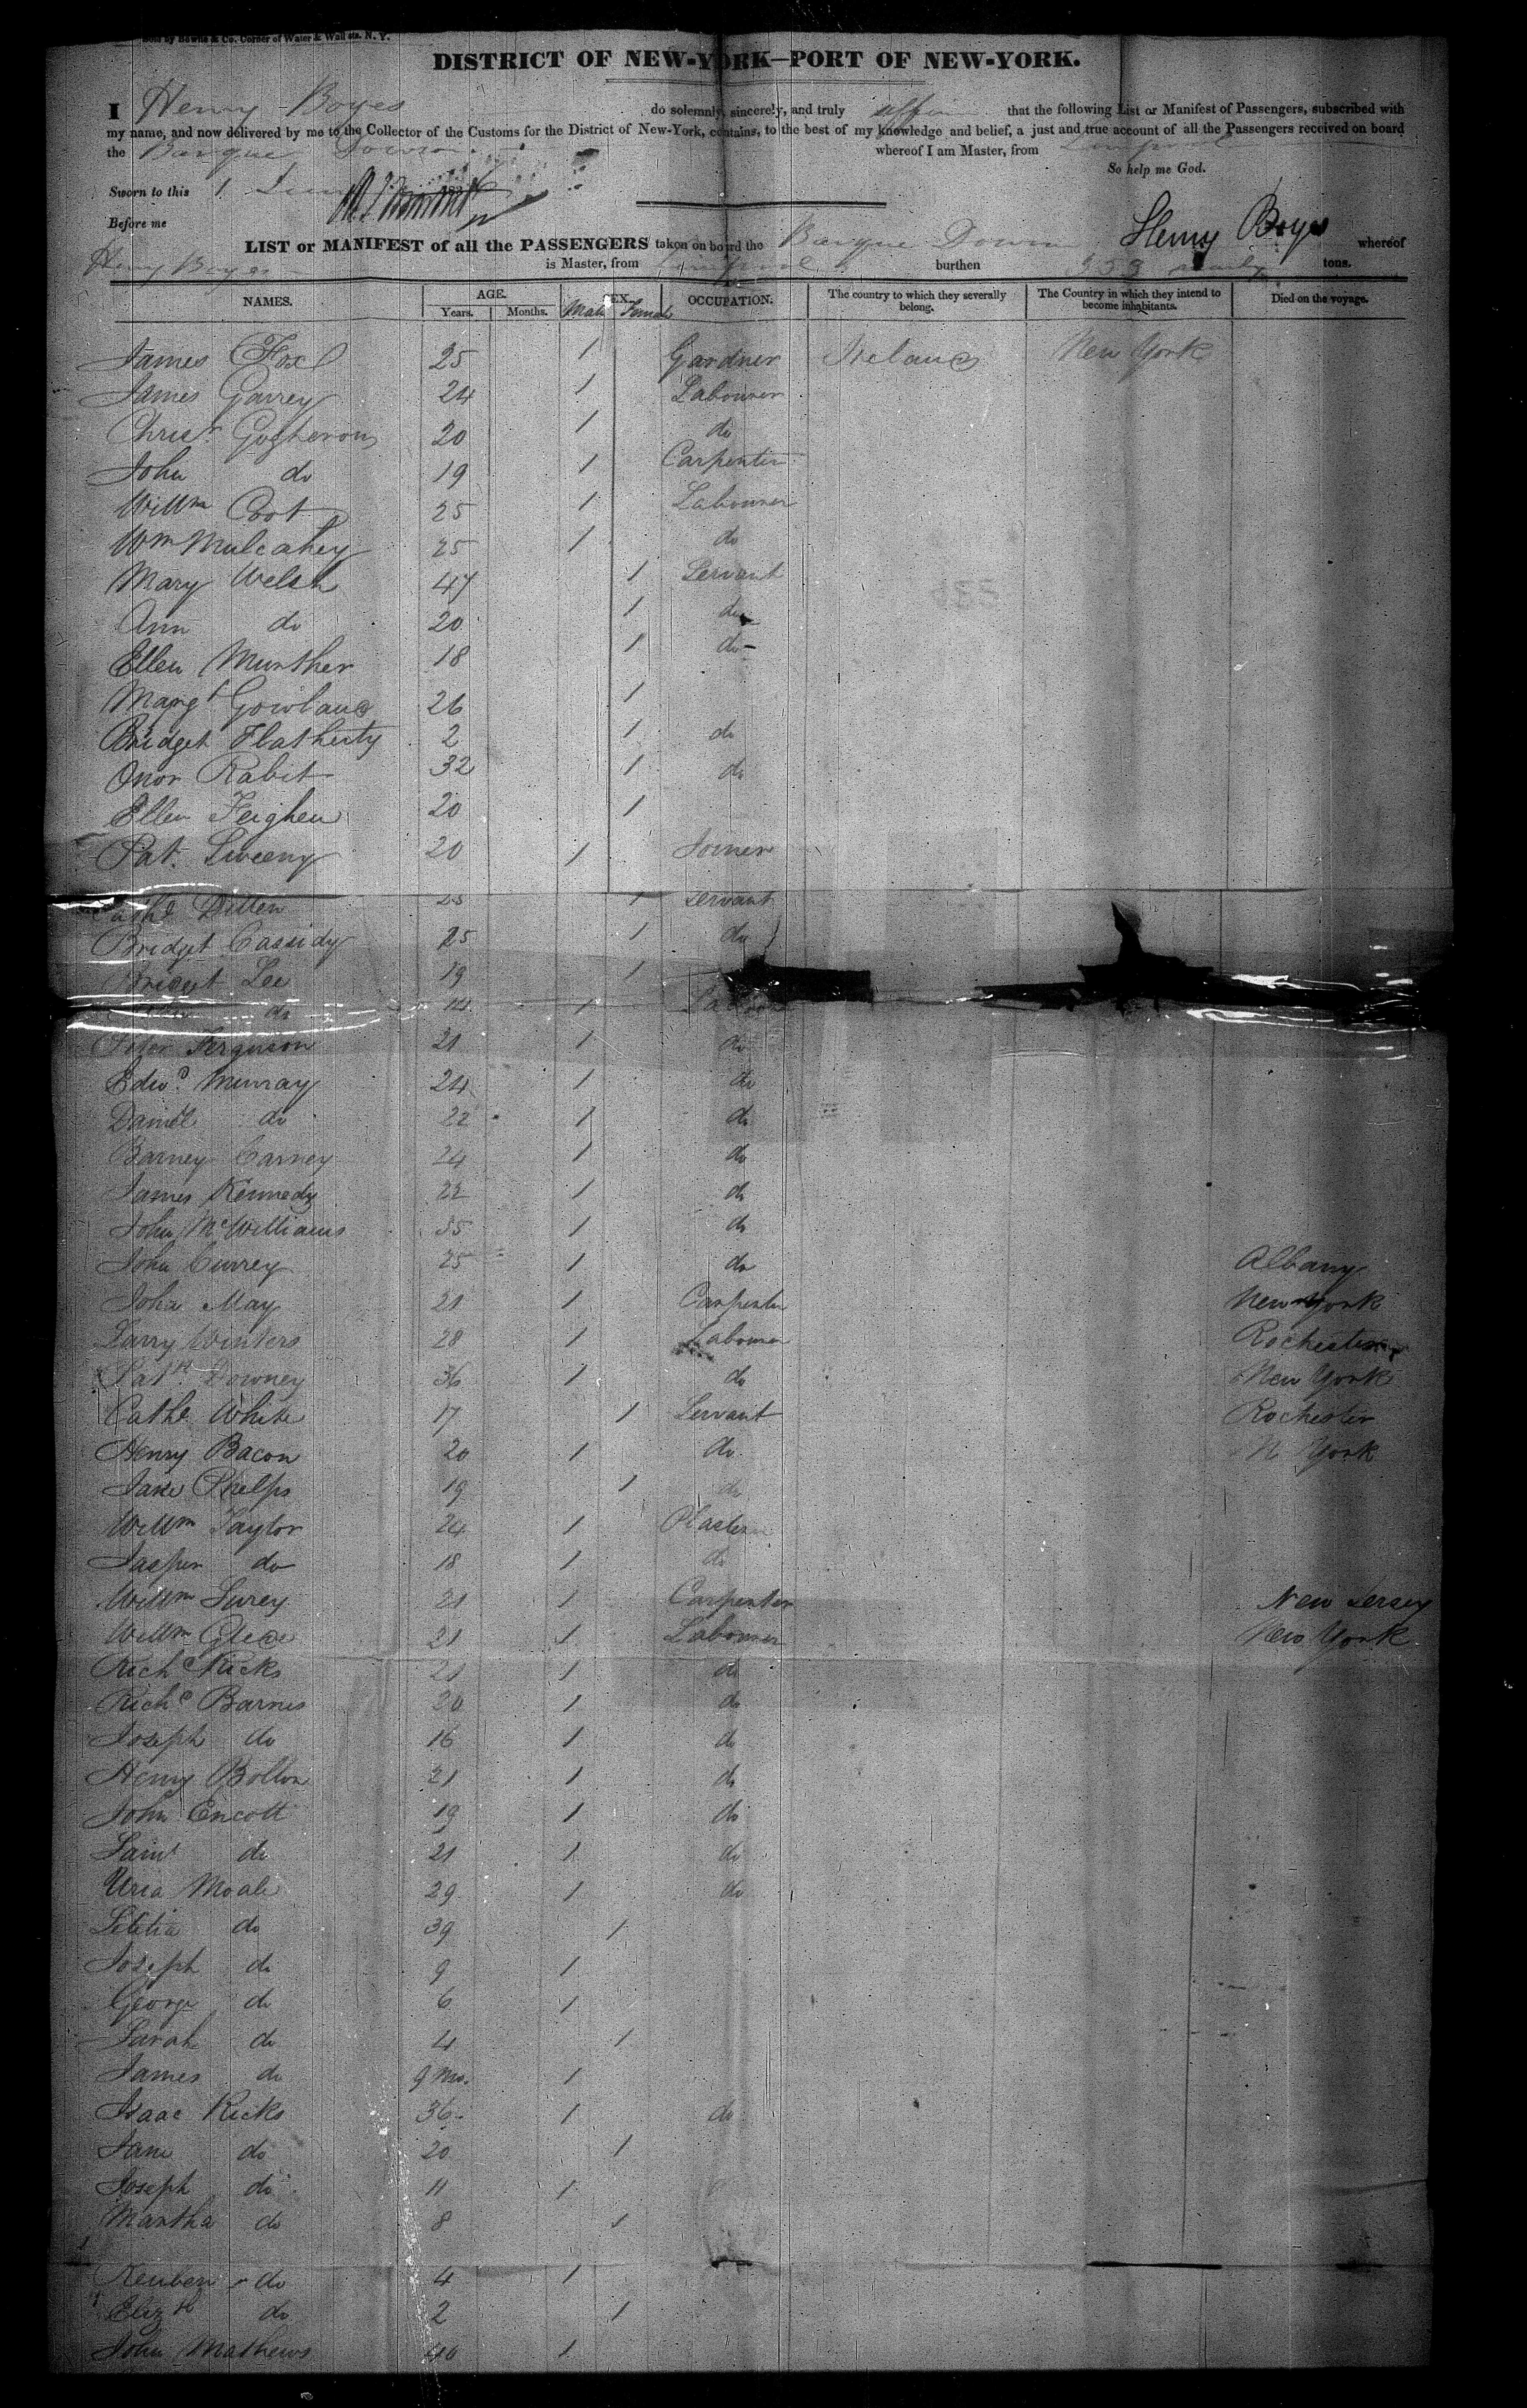 Sold by Bowne & Co. Corner of Water & Wall sts. N. Y.
DISTRICT OF NEW-YORK—PORT OF NEW-YORK.
I Henry Boyes do solemnly, sincerely, and truly affirm that the following List or Manifest of Passengers, subscribed with
my name, and now delivered by me to the Collector of the Customs for the District of New-York, contains, to the best of my knowledge and belief, a just and true account of all the Passengers received on board
the Barque whereof I am Master, from Liverpool
So help me God.
Sworn to this 1 183
Before me
Henry Boyes
LIST or MANIFEST of all the PASSENGERS taken on board the Barque whereof
Henry Boyes is Master, from Liverpool burthen 353 tons.
NAMES. AGE. SEX. OCCUPATION. The country to which they severally belong. The Country in which they intend to become inhabitants. Died on the voyage.
Years. Months. Male Female
James Fox 25 1 Gardner Ireland New York
James Garrey 24 1 Labourer
Chrisr. 20 1 do
John do 19 1 Carpenter
Willm Coot 25 1 Labourer
Wm Mulcahey 25 1 do
Mary Welsh 47 1 Servant
Ann do 20 1 do
Ellen Munther 18 1 do
Margt Gowland 26 1
Bridget Flatherty 2 1 do
Onor Rabit 32 1 do
Ellen Feighen 20 1
Pat. Sweeny 20 1 Joiner
Cathe Dillen 25 1 Servant
Bridget Cassidy 25 1 do
Bridget Lee 19 1
do 14 1 Labourer
Peter Ferguson 21 1 do
Edwd. Murray 24 1 do
Daniel do 22 1 do
Barney Carney 24 1 do
James Kennedy 22 1 do
John McWilliams 35 1 do
John Currey 25 1 do Albany
John May 21 1 Carpenter New York
Larry Winters 28 1 Labourer Rochester
Patk Downey 36 1 do New York
Cathe White 17 1 Servant Rochester
Henry Bacon 20 1 do N York
Jane Phelps 19 1 do
Willm Taylor 24 1 Plasterer
Jasper do 18 1 do
Willm Surey 21 1 Carpenter New Jersey
Willm 21 1 Labourer New York
Richd Ricks 21 1 do
Richd Barnes 20 1 do
Joseph do 16 1 do
Henry Bolton 21 1 do
John Encott 19 1 do
do 21 1 do
Uria Moale 29 1 do
Letitia do 39 1
Joseph do 9 1
George do 6 1
Sarah do 4 1
James do 9 Mo. 1
Isaac Ricks 36 1 do
Jane do 20 1
Joseph do 11 1
Martha do 8 1
Reuben do 4 1
Elizth do 2 1
John Mathews 40 1